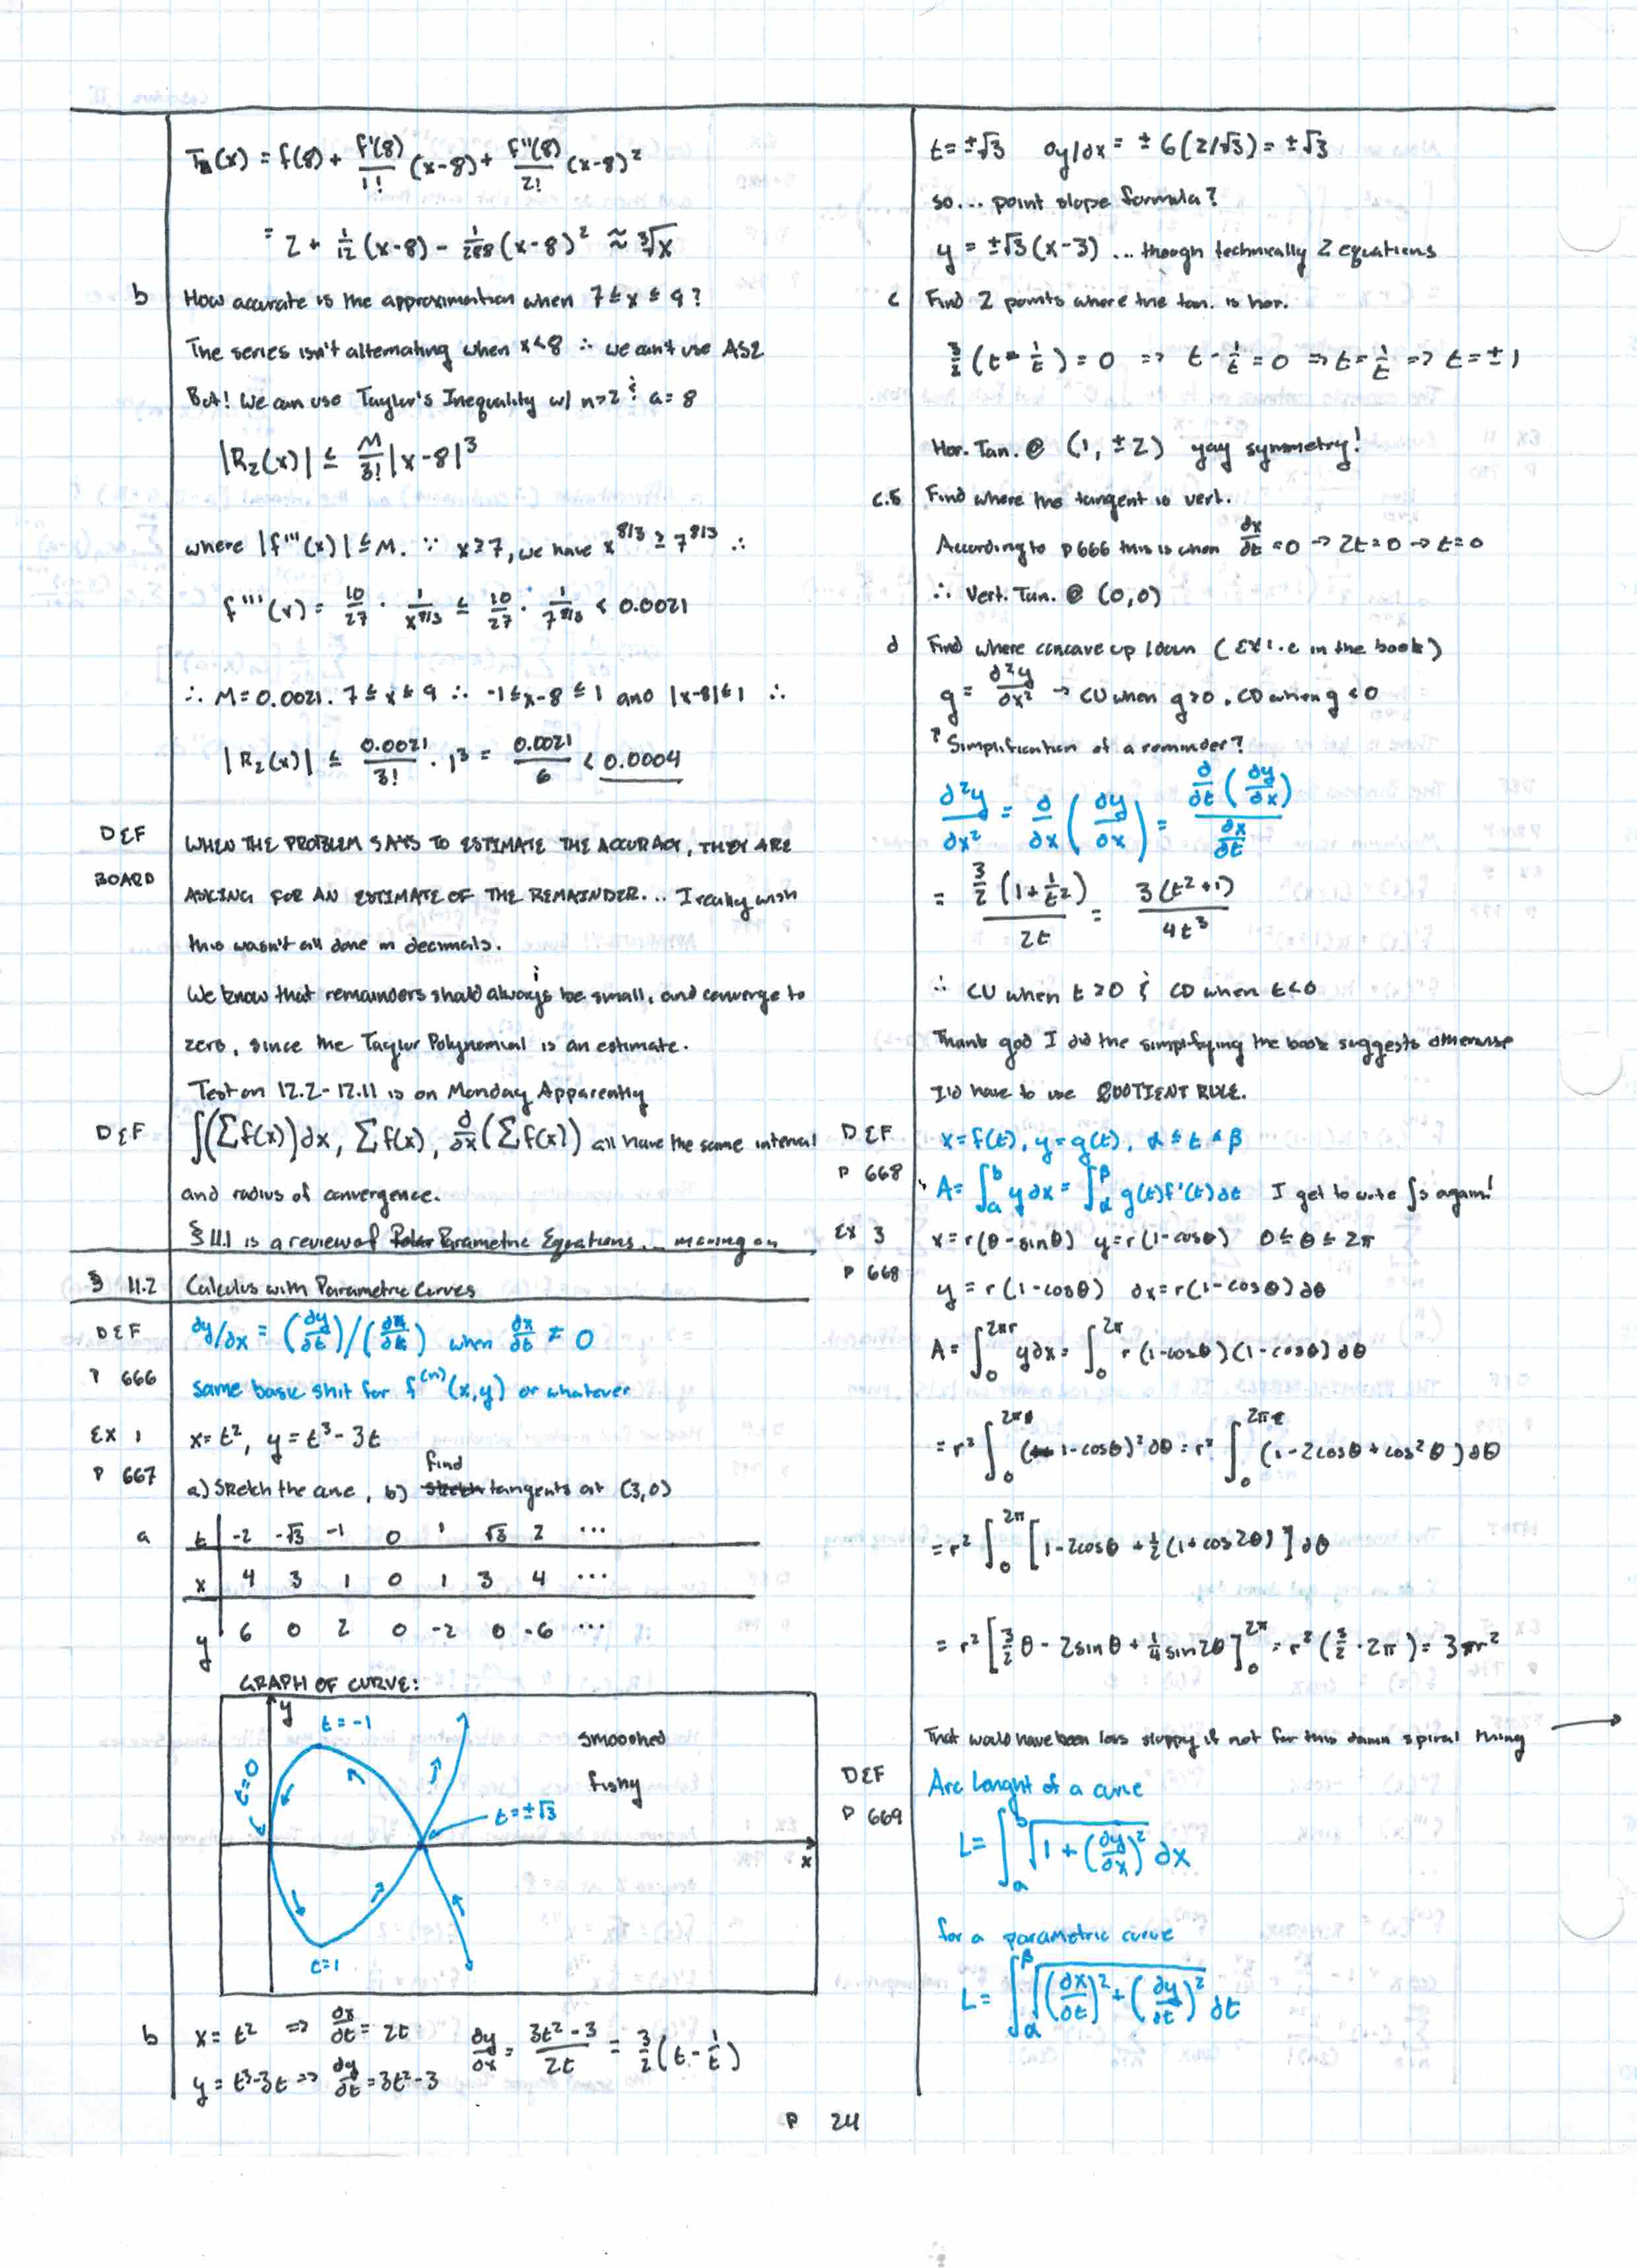 T_n(x) = f(8) + f'(8)/1! (x-8) + f''(8)/2! (x-8)²
= 2 + 1/12 (x-8) - 1/288 (x-8)² ≈ ∛x
b How accurate is the approximation when 7 ≤ x ≤ 9?
The series isn't alternating when x<8 ∴ we can't use ASE
But! We can use Taylor's Inequality w/ n=2 & a=8
|R₂(x)| ≤ M/3! |x-8|³
where |f'''(x)| ≤ M. ∵ x≥7, we have x^8/3 ≥ 7^8/3 ∴
f'''(x) = 10/27 · 1/x^8/3 ≤ 10/27 · 1/7^8/3 < 0.0021
∴ M=0.0021. 7≤x≤9 ∴ -1≤x-8≤1 and |x-8|≤1 ∴
|R₂(x)| ≤ 0.0021/3! · 1³ = 0.0021/6 < 0.0004
DEF WHEN THE PROBLEM SAYS TO ESTIMATE THE ACCURACY, THEY ARE
BOARD ASKING FOR AN ESTIMATE OF THE REMAINDER... I really wish
this wasn't all done in decimals.
We know that remainders should always be small, and converge to
zero, since the Taylor Polynomial is an estimate.
Test on 12.2-12.11 is on Monday Apparently
DEF ∫(Σf(x))dx, Σf(x), d/dx(Σf(x)) all have the same interval
and radius of convergence.
§ 11.1 is a review of Polar Parametric Equations... moving on
§ 11.2 Calculus with Parametric Curves
DEF dy/dx = (dy/dt)/(dx/dt) when dx/dt ≠ 0
P 666 same basic shit for f^(n)(x,y) or whatever
EX 1 x=t², y=t³-3t
P 667 a) Sketch the curve, b) sketch find tangents at (3,0)
a t -2 -√3 -1 0 1 √3 2 ...
x 4 3 1 0 1 3 4 ...
y 6 0 2 0 -2 0 -6 ...
GRAPH OF CURVE:
y
t=-1
smooshed
fishy
t=0
t=±√3
x
t=1
b x=t² => dx/dt = 2t dy/dx = 3t²-3/2t = 3/2(t-1/t)
y=t³-3t => dy/dt = 3t²-3
t=±√3 dy/dx = ±6(2/√3) = ±√3
so... point slope formula?
y = ±√3(x-3) ...though technically 2 equations
c Find 2 points where the tan. is hor.
3/2(t-1/t)=0 => t-1/t=0 => t=1/t => t=±1
Hor. Tan. @ (1, ±2) yay symmetry!
c.5 Find where the tangent is vert.
According to p666 this is when dx/dt=0 → 2t=0 → t=0
∴ Vert. Tan. @ (0,0)
d Find where concave up/down (EX 1.c in the book)
g = d²y/dx² → CU when g>0, CD when g<0
↑ Simplification of a reminder?
d²y/dx² = d/dx(dy/dx) = d/dt(dy/dx)/dx/dt
= 3/2(1+1/t²)/2t = 3(t²+1)/4t³
∴ CU when t>0 & CD when t<0
Thank god I did the simplifying the book suggests otherwise
I'd have to use QUOTIENT RULE.
DEF x=f(t), y=g(t), α≤t≤β
P 668 A=∫_a^b ydx = ∫_α^β g(t)f'(t)dt I get to write ∫s again!
EX 3 x=r(θ-sinθ) y=r(1-cosθ) 0≤θ≤2π
P 668 y=r(1-cosθ) dx=r(1-cosθ)dθ
A=∫_0^2πr ydx = ∫_0^2π r(1-cosθ)(1-cosθ)dθ
=r²∫_0^2π (1-cosθ)²dθ = r²∫_0^2π (1-2cosθ+cos²θ)dθ
=r²∫_0^2π [1-2cosθ+½(1+cos2θ)]dθ
=r²[3/2θ-2sinθ+¼sin2θ]_0^2π = r²(3/2·2π) = 3πr²
That would have been less sloppy if not for this damn spiral thing →
DEF Arc Lenght of a curve
P 669 L=∫_a^b √1+(dy/dx)² dx
for a parametric curve
L=∫_α^β √(dx/dt)²+(dy/dt)² dt
P 24